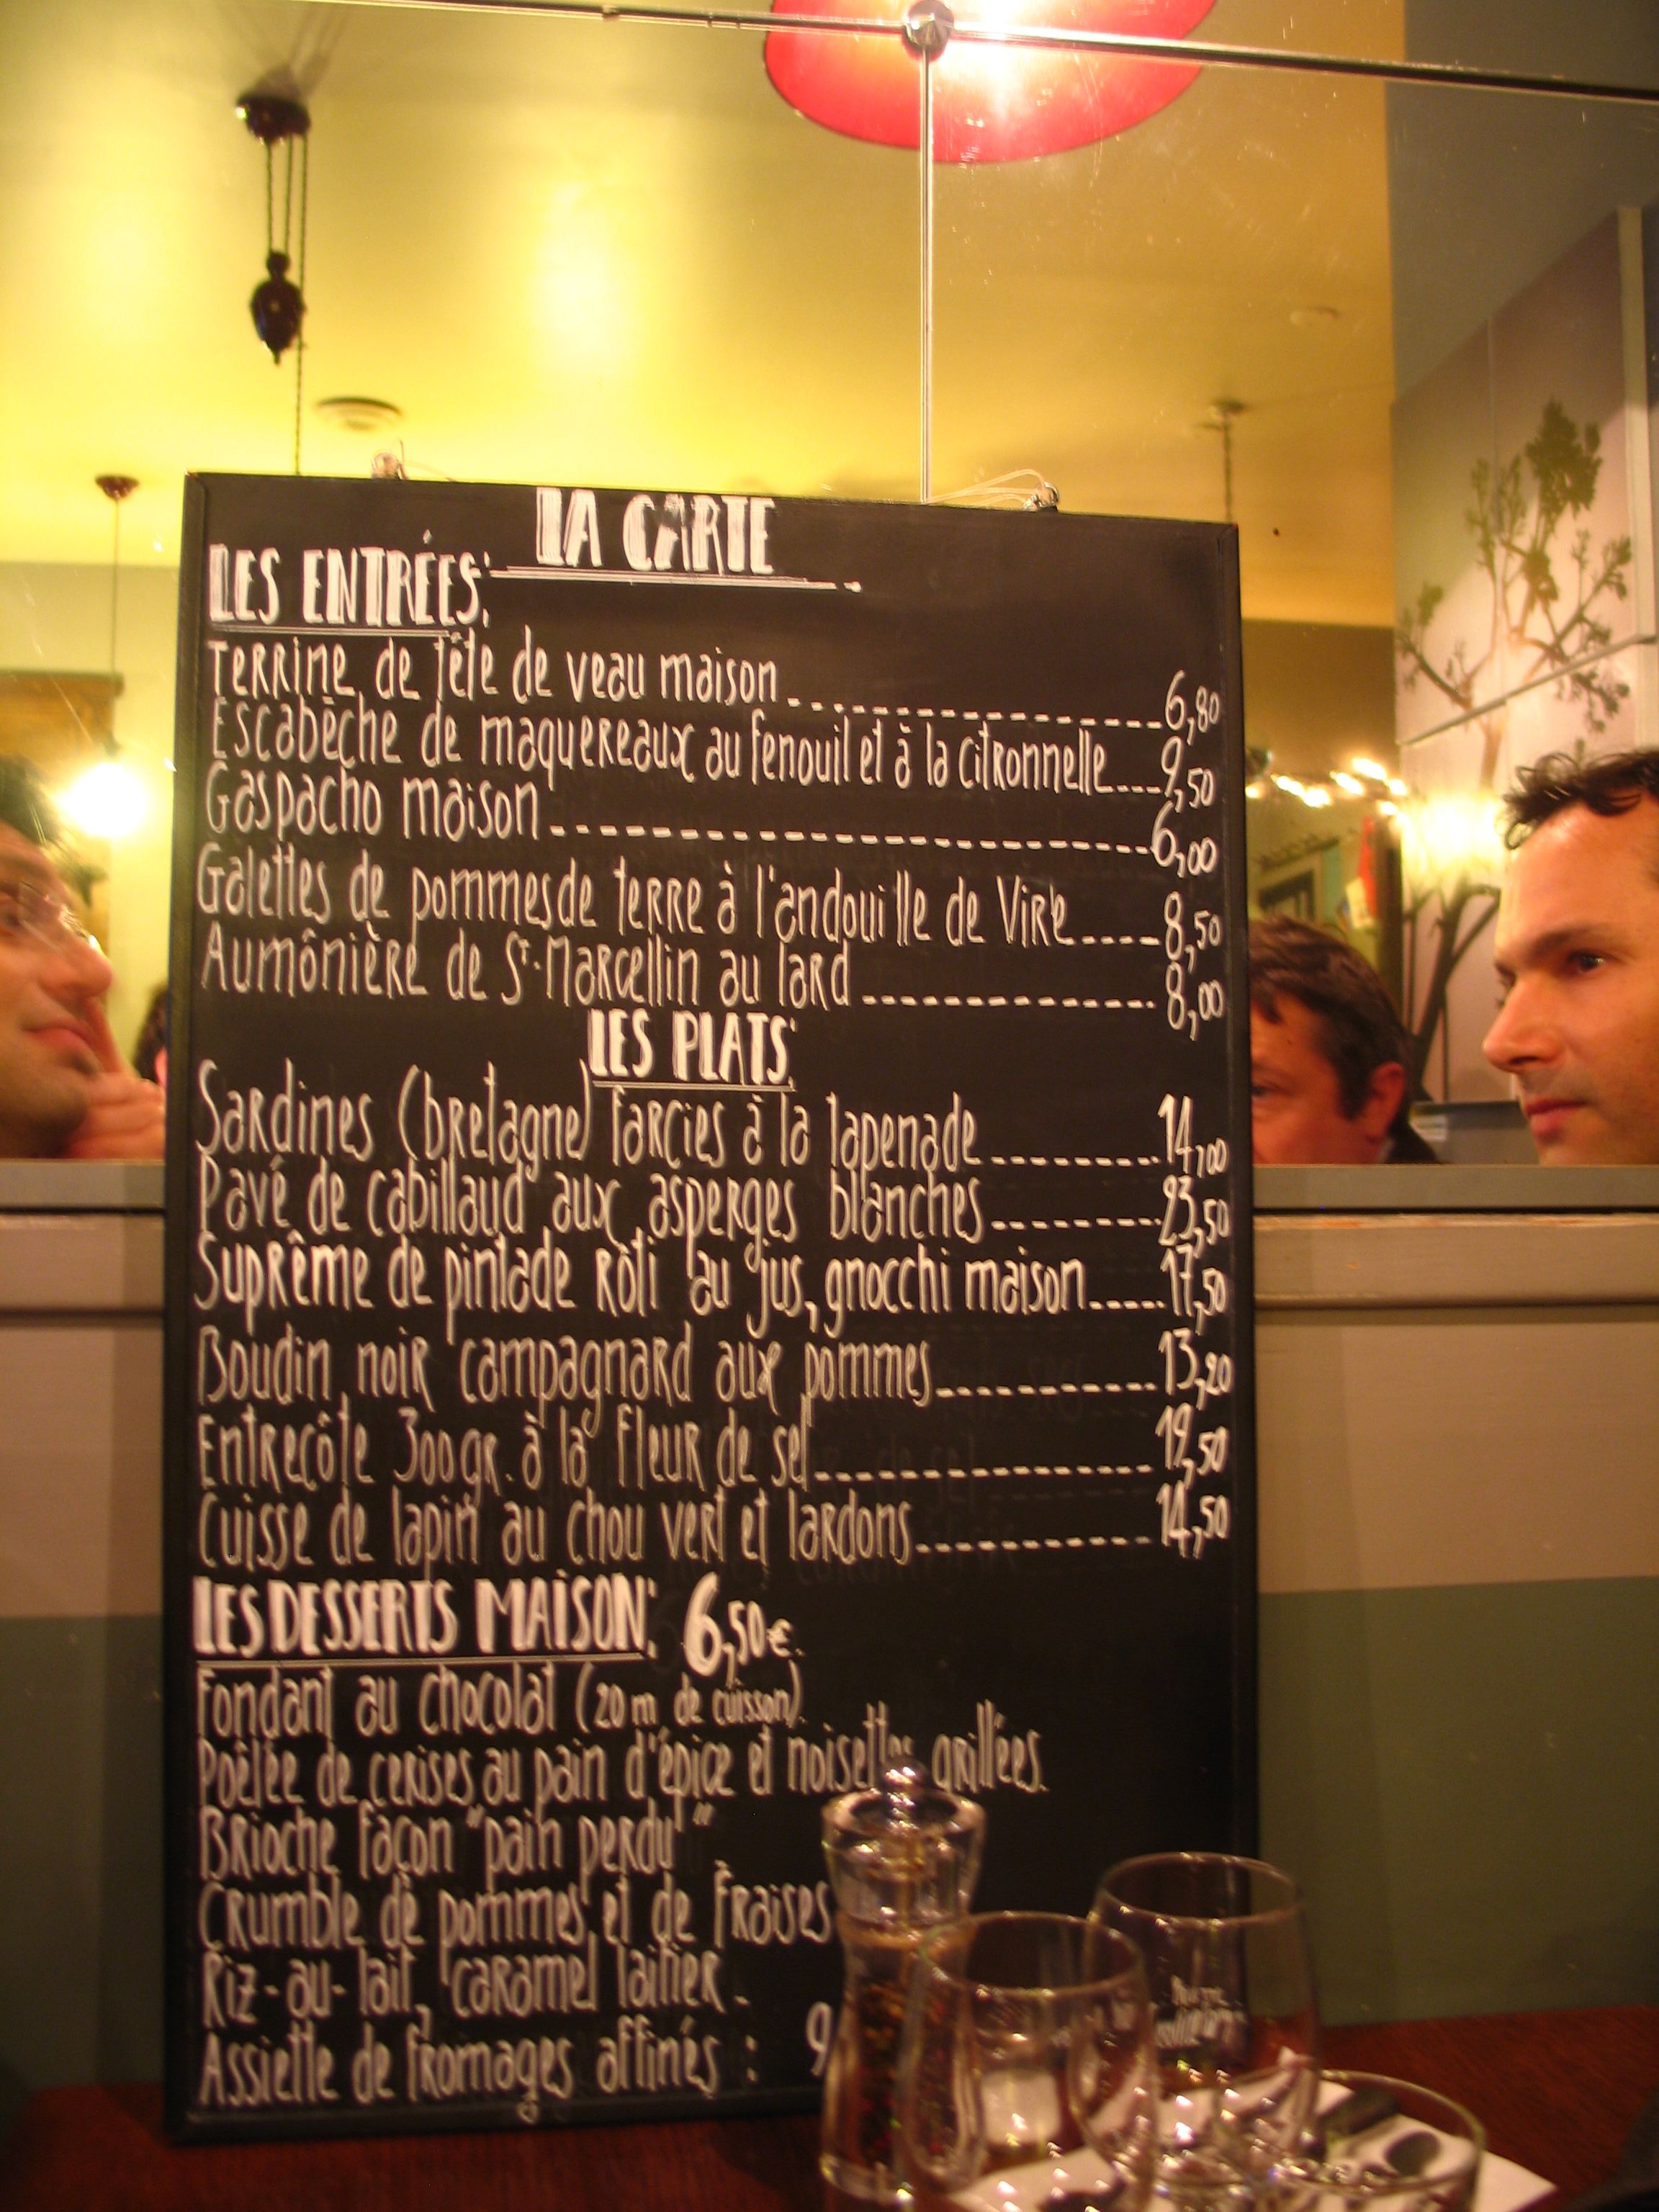 LA CARTE
LES ENTRÉES:
Terrine de tête de veau maison 6,80
Escabèche de maquereaux au fenouil et à la citronnelle 9,50
Gaspacho maison 6,00
Galettes de pommes de terre à l'andouille de Vire 8,50
Aumônière de St-Marcellin au lard 8,00
LES PLATS:
Sardines (bretagne) farcies à la tapenade 14,00
Pavé de cabillaud aux asperges blanches 23,50
Suprême de pintade rôti au jus, gnocchi maison 17,50
Boudin noir campagnard aux pommes 13,20
Entrecôte 300gr. à la fleur de sel 19,50
Cuisse de lapin au chou vert et lardons 14,50
LES DESSERTS MAISON: 6,50€.
Fondant au chocolat (20m de cuisson).
Poêlée de cerises au pain d'épice et noisettes grillées.
Brioche façon "pain perdu"
Crumble de pommes et de fraises
Riz-au-lait, caramel laitier.
Assiette de fromages affinés : 9